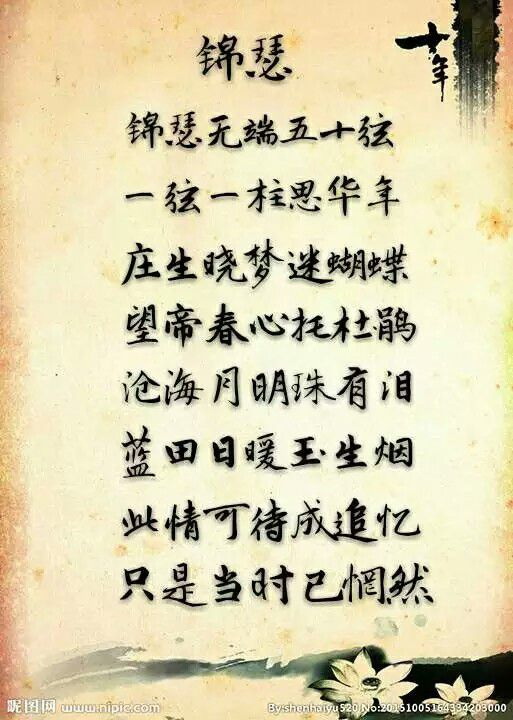 十年
锦瑟
锦瑟无端五十弦
一弦一柱思华年
庄生晓梦迷蝴蝶
望帝春心托杜鹃
沧海月明珠有泪
蓝田日暖玉生烟
此情可待成追忆
只是当时已惘然
昵图网 www.nipic.com
By:shenhaiyu520 No:20151005164334203000